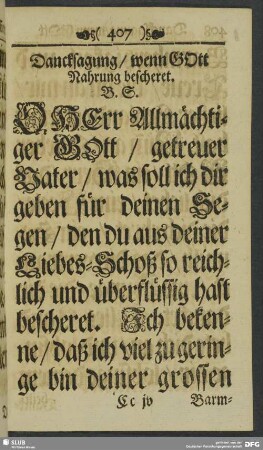 ( 407 )
Dancksagung / wenn GOtt
Nahrung bescheret.
B. S.
O HErr Allmächti-
ger GOtt / getreuer
Vater / was soll ich dir
geben für deinen Se-
gen / den du aus deiner
Liebes-Schoß so reich-
lich und überflüssig hast
bescheret. Ich beken-
ne / daß ich viel zu gerin-
ge bin deiner grossen
Cc jv Barm-
SLUB
DFG